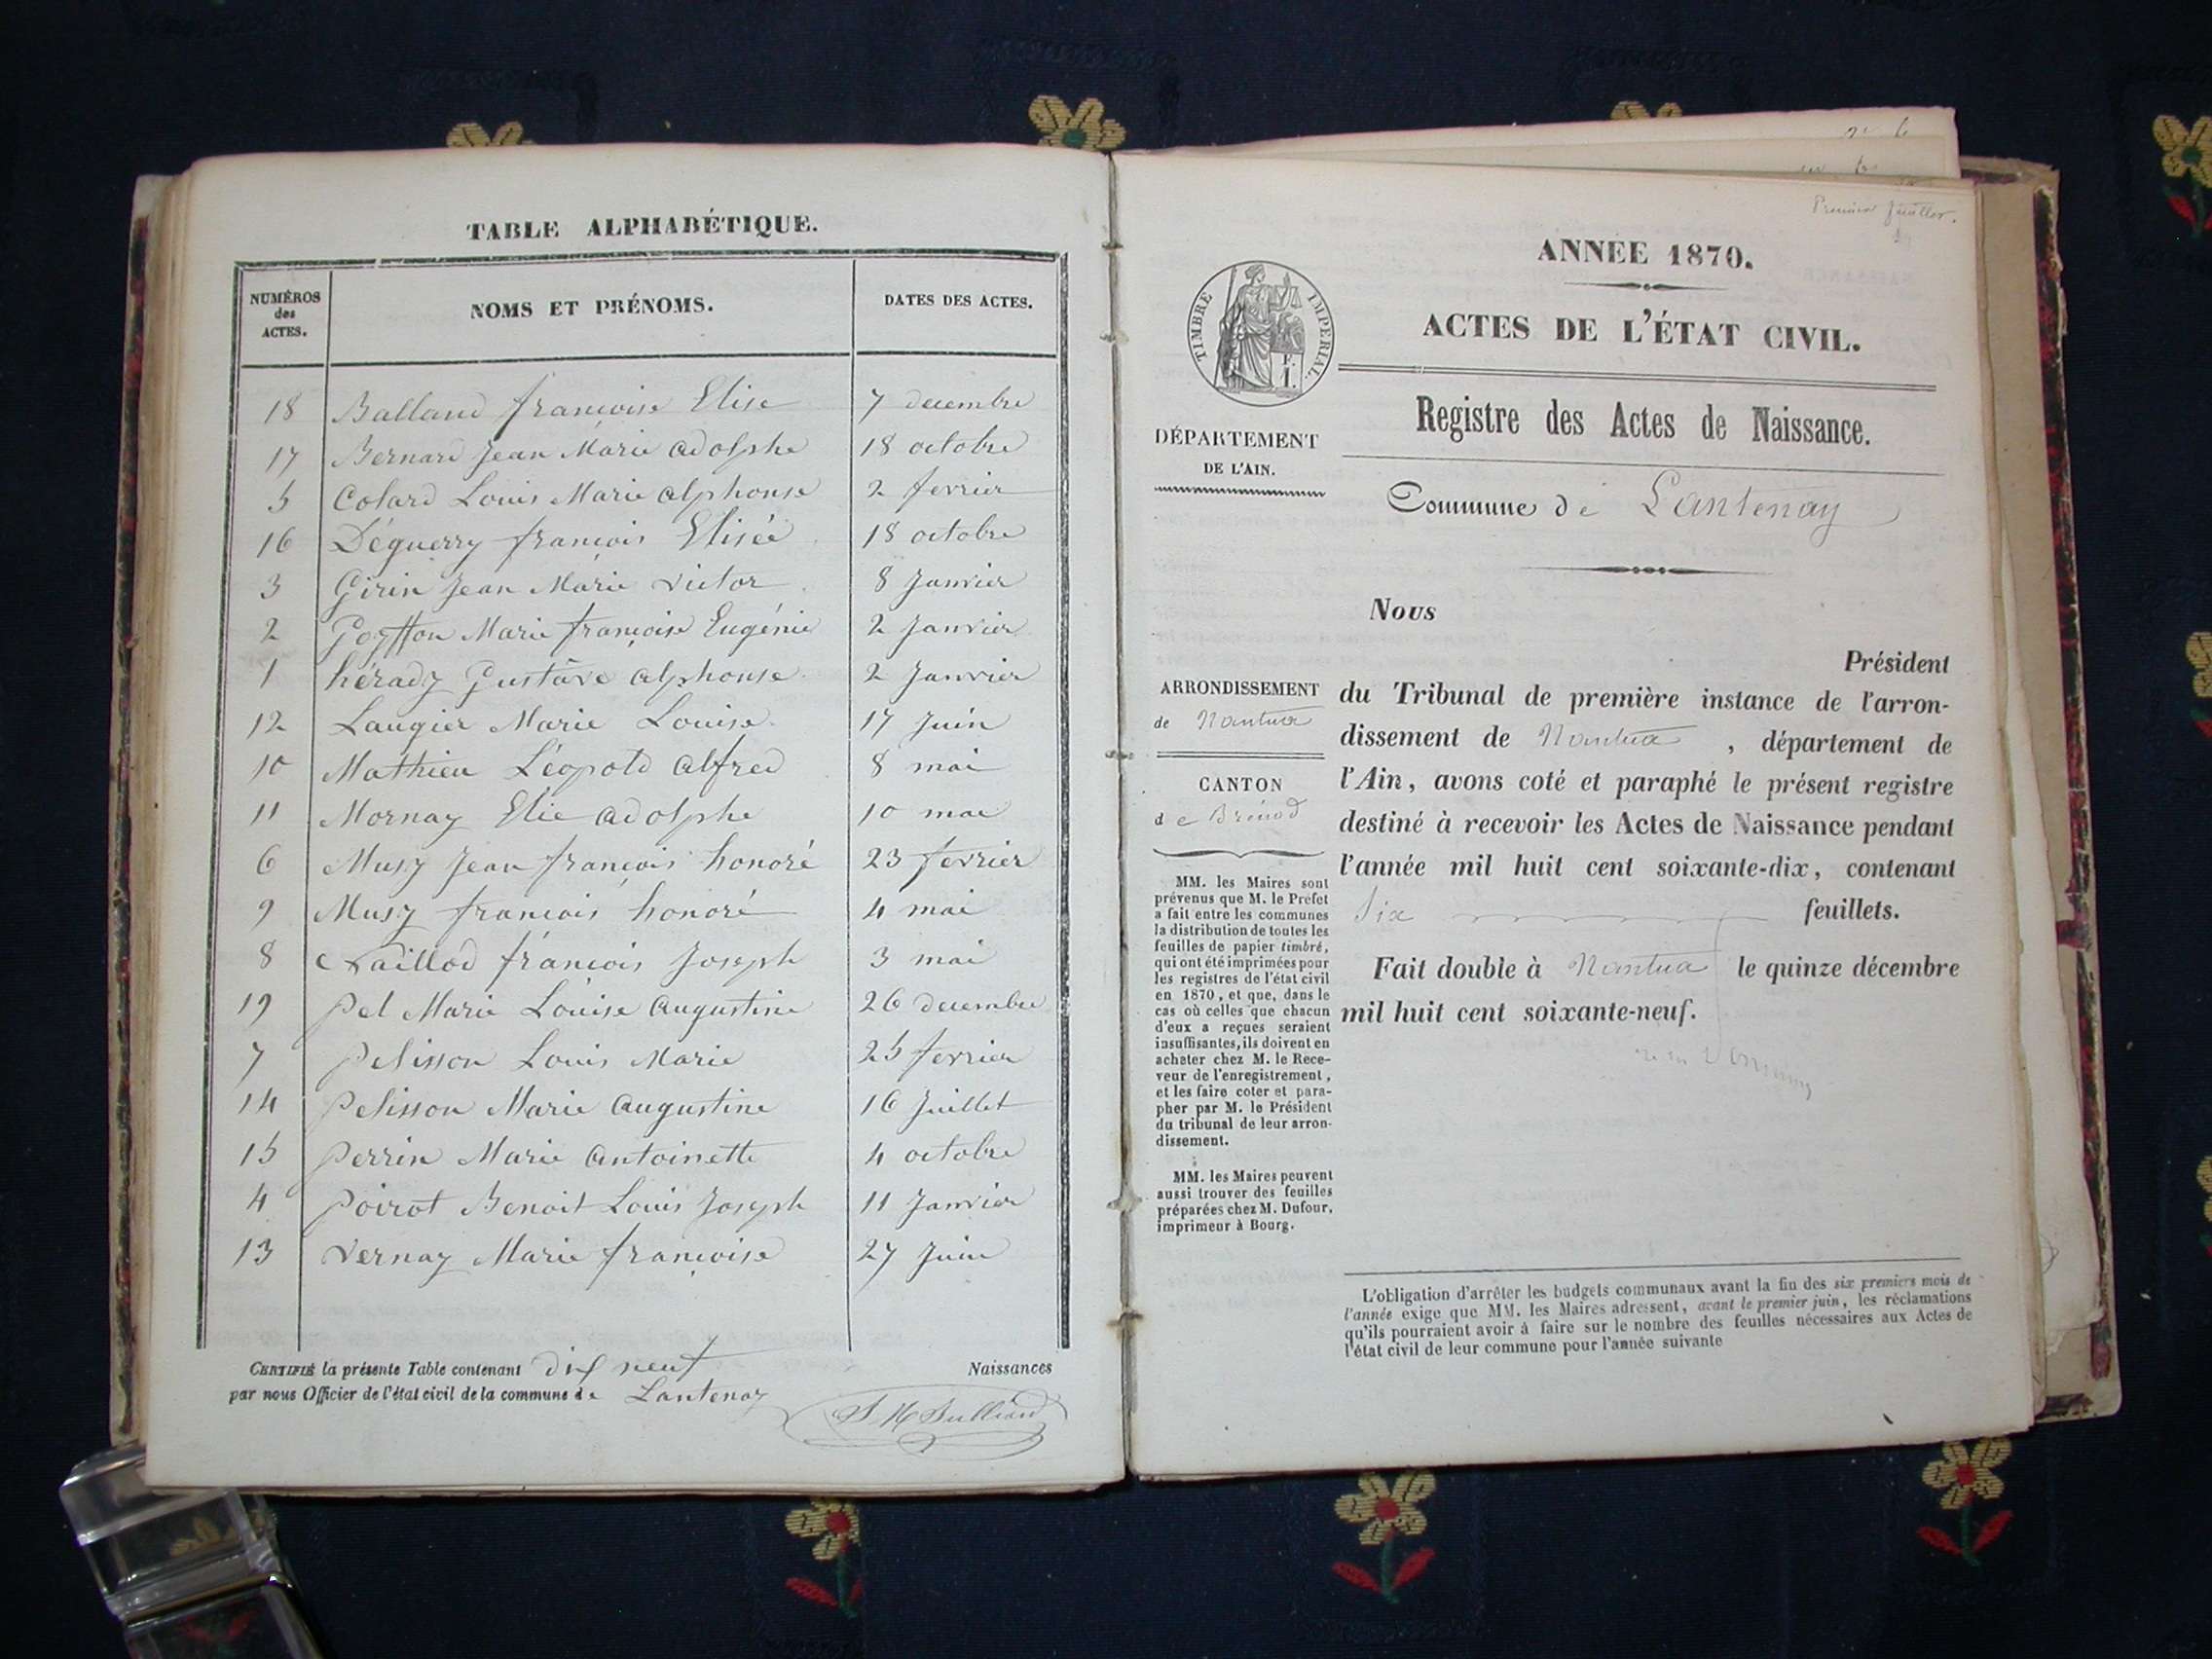 TABLE ALPHABÉTIQUE.
NUMÉROS des ACTES.
NOMS ET PRÉNOMS.
DATES DES ACTES.
18 Balland françoise Elise 7 decembre
17 Bernard Jean Marie adolphe 18 octobre
5 Colard Louis Marie alphonse 2 fevrier
16 Déguerry françois Elisée 18 octobre
3 Girin Jean Marie victor 8 Janvier
2 Goyffon Marie françoise Eugénie 2 Janvier
1 hérady Gustave alphonse 2 Janvier
12 Laugier Marie Louise 17 Juin
10 Mathieu Léopold alfred 8 mai
11 Mornay Elie adolphe 10 mai
6 Musy Jean françois honoré 23 fevrier
9 Musy françois honoré 4 mai
8 Naillod françois Joseph 3 mai
19 pel Marie Louise augustine 26 decembre
7 pelisson Louis Marie 25 fevrier
14 pelisson Marie augustine 16 Juillet
15 perrin Marie antoinette 4 octobre
4 poirot Benoit Louis Joseph 11 Janvier
13 vernay Marie françoise 27 Juin
CERTIFIÉ la présente Table contenant dix neuf Naissances
par nous Officier de l'état civil de la commune de Lantenay
Premier feuillet.
ANNÉE 1870.
TIMBRE IMPERIAL.
ACTES DE L'ÉTAT CIVIL.
Registre des Actes de Naissance.
DÉPARTEMENT
DE L'AIN.
Commune de Lantenay
Nous
Président
ARRONDISSEMENT
de Nantua
du Tribunal de première instance de l'arron-
dissement de Nantua, département de
CANTON
de Brénod
l'Ain, avons coté et paraphé le présent registre
destiné à recevoir les Actes de Naissance pendant
l'année mil huit cent soixante-dix, contenant
six feuillets.
Fait double à Nantua le quinze décembre
mil huit cent soixante-neuf.
MM. les Maires sont
prévenus que M. le Préfet
a fait entre les communes
la distribution de toutes les
feuilles de papier timbré,
qui ont été imprimées pour
les registres de l'état civil
en 1870, et que, dans le
cas où celles que chacun
d'eux a reçues seraient
insuffisantes, ils doivent en
acheter chez M. le Rece-
veur de l'enregistrement,
et les faire coter et para-
pher par M. le Président
du tribunal de leur arron-
dissement.
MM. les Maires peuvent
aussi trouver des feuilles
préparées chez M. Dufour,
imprimeur à Bourg.
L'obligation d'arrêter les budgets communaux avant la fin des six premiers mois de
l'année exige que MM. les Maires adressent, avant le premier juin, les réclamations
qu'ils pourraient avoir à faire sur le nombre des feuilles nécessaires aux Actes de
l'état civil de leur commune pour l'année suivante